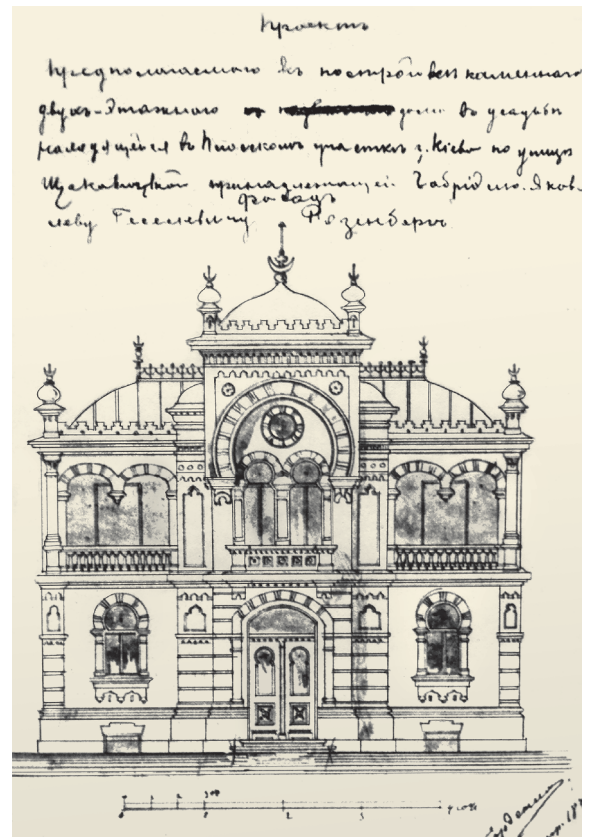 Проектъ
Предполагаемаго къ постройкѣ каменнаго
двухъ-этажнаго дома въ усадьбѣ
находящейся въ участкѣ г. Кіева по улицѣ
Щекавицкой принадлежащей Габріэлю Яков-
фасадъ
леву Геселевичу Розенбергъ